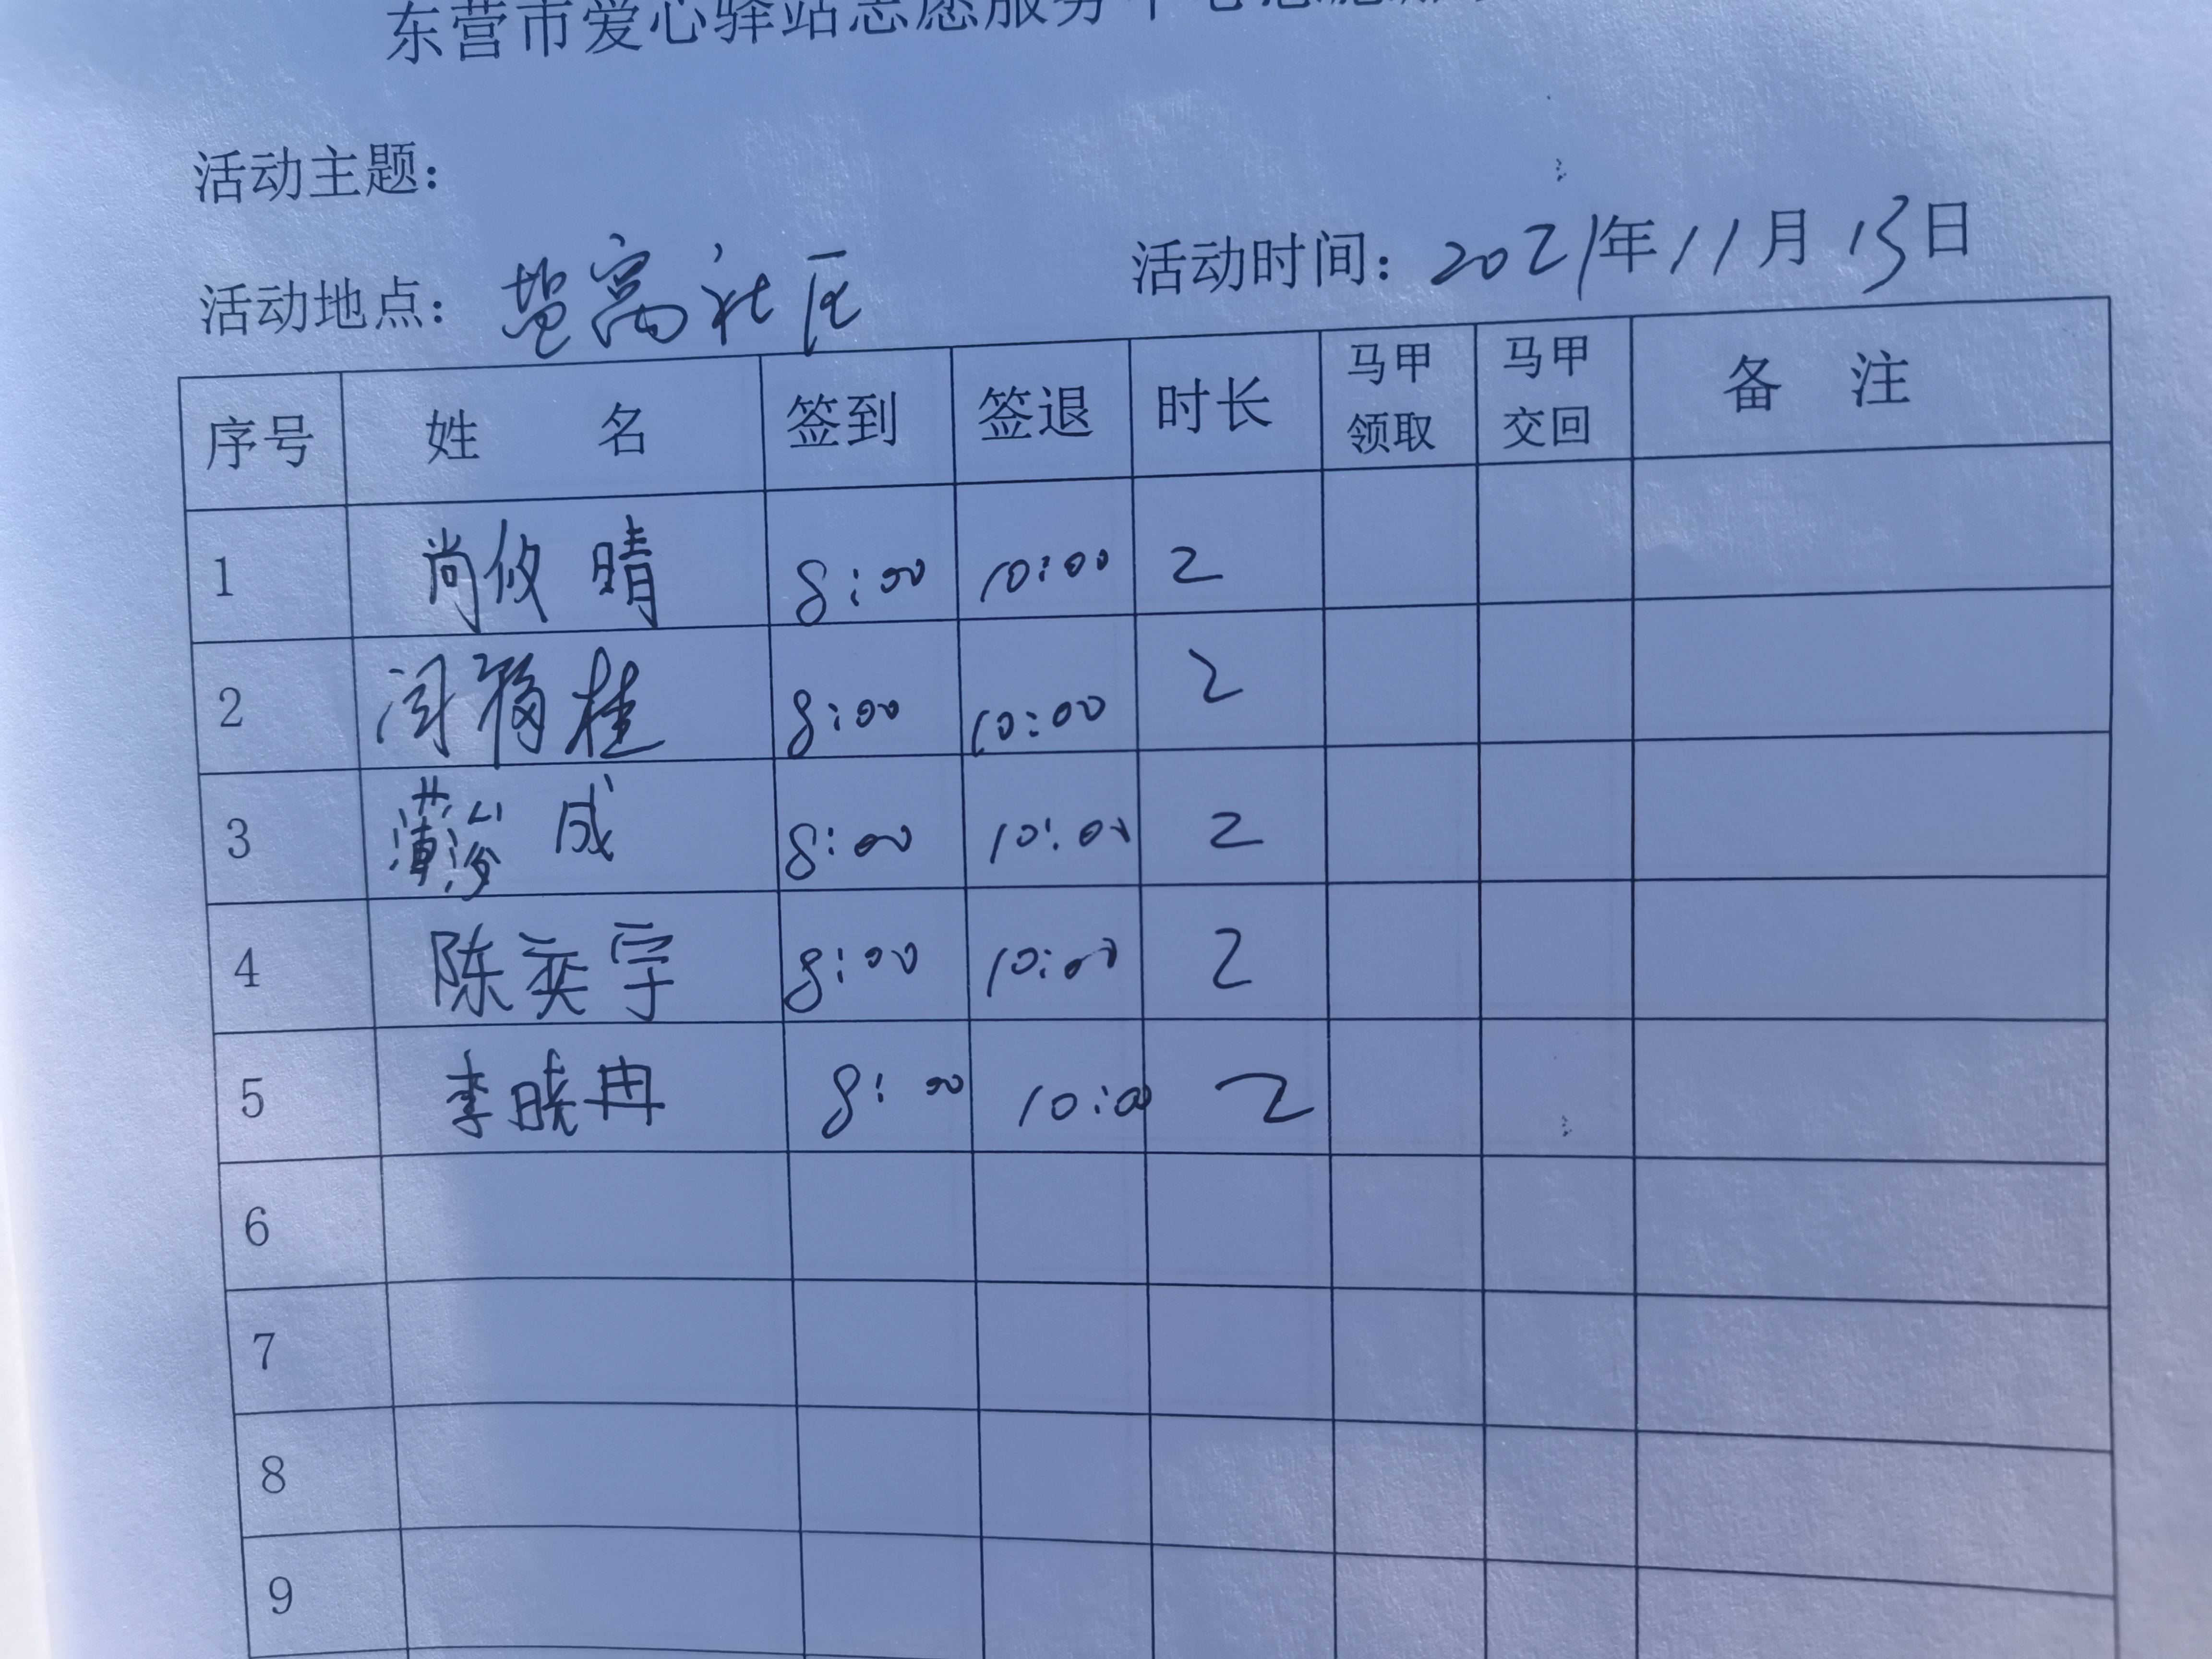 东营市爱心驿站志愿服务中心志愿
活动主题：
活动地点：盐窝社区 活动时间：2021年11月13日
序号 姓 名 签到 签退 时长 马甲领取 马甲交回 备 注
1 尚攸晴 8:00 10:00 2
2 闫福桂 8:00 10:00 2
3 薄 成 8:00 10:00 2
4 陈奕宇 8:00 10:00 2
5 李晓冉 8:00 10:00 2
6
7
8
9